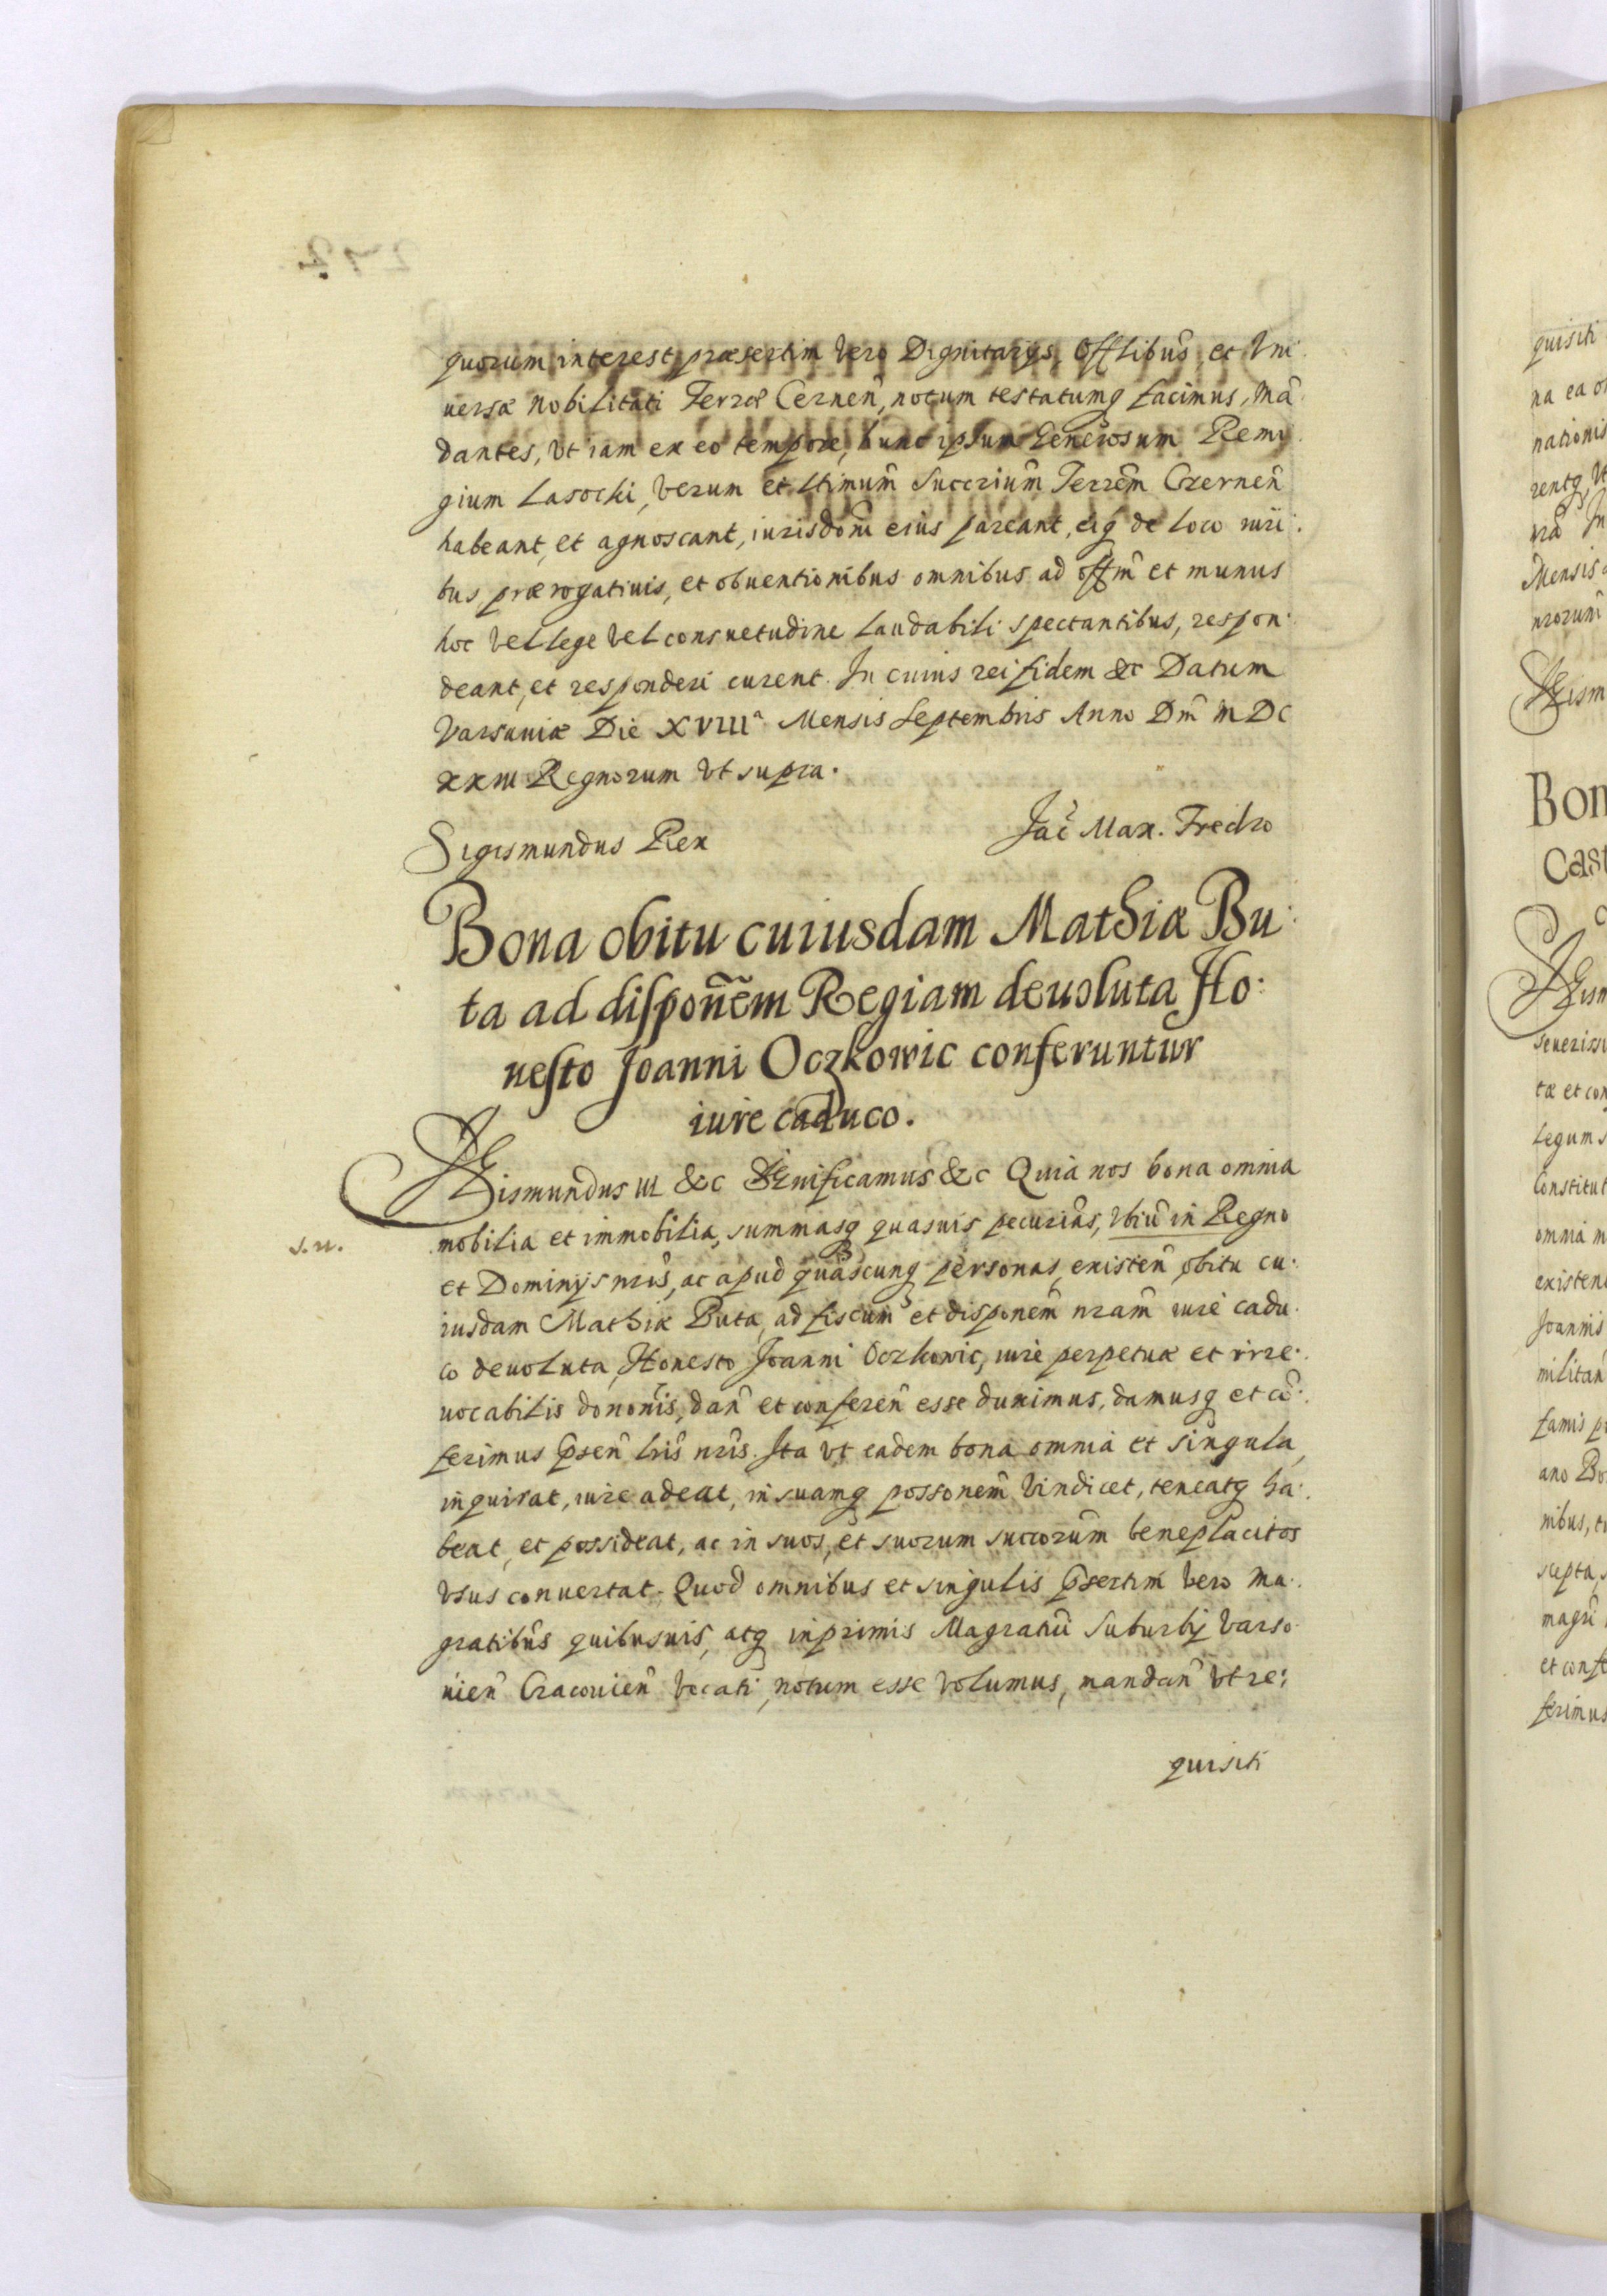 quorum interest, præsertim vero Dignitarijs, Offlibus̃ et Vni
uersæ Nobilitati Terræ Cernen̄, notum testatumq facimus, Mā
dantes, vt iam ex eo tempore, hunc ipsum Generosum Remi
gium Lasocki, verum et ltimum̄ Succriũm Terrẽm Czernen̄
habeant, et agnoscant, iurisdonĩ eius pareant, eiq de loco iuri
bus prærogatiuis, et obuentionibus omnibus ad offm̃ et munus
hoc vel lege vel consuetudine laudabili spectantibus, respon
deant, et responderi curent. In cuius rei fidem &c Datum
Varsauiæ Die XVIIIª Mensis Septembris Anno Dnĩ M DC
xxiii Regnorum vt supra.
Sigismundus Rex
Jac̃ Max. Fredro
Bona obitu cuiusdam Mathiæ Bu
ta ad disponẽm Regiam deuoluta Ho
nesto Joanni Oczkowic conferuntur
iure caduco.
Sigismundus III &c Significamus &c Quia nos bona omnia
s.n.
mobilia et immobilia, summasq quasuis pecuriãs, vbiũ in Regno
et Dominijs nris̃, ac apud quascunq personas, existen̄ obitu cu
iusdam Mathiæ Buta, ad fiscum et disponẽm nram̃ iure cadu
co deuoluta, Honesto Joanni Oczkowic, iure perpetuæ et irre
uocabilis dononĩs, dan̄ et conferen̄ esse duximus, damusq et cõ
ferimus p̃sen̄ lris̃ nris̃. Ita vt eadem bona omnia et singula,
inquirat, iure adeat, in suamq possonẽm vindicet, teneatq ha
beat, et possideat, ac in suos, et suorum succorũm beneplacitos
vsus conuertat. Quod omnibus et singulis p̃sertim vero Ma
gratibũs quibusuis, atq inprimis Magratui Suburbij Varso
uien̄ Cracouien̄ vocati, notum esse volumus, mandan̄ vt re
quisiti